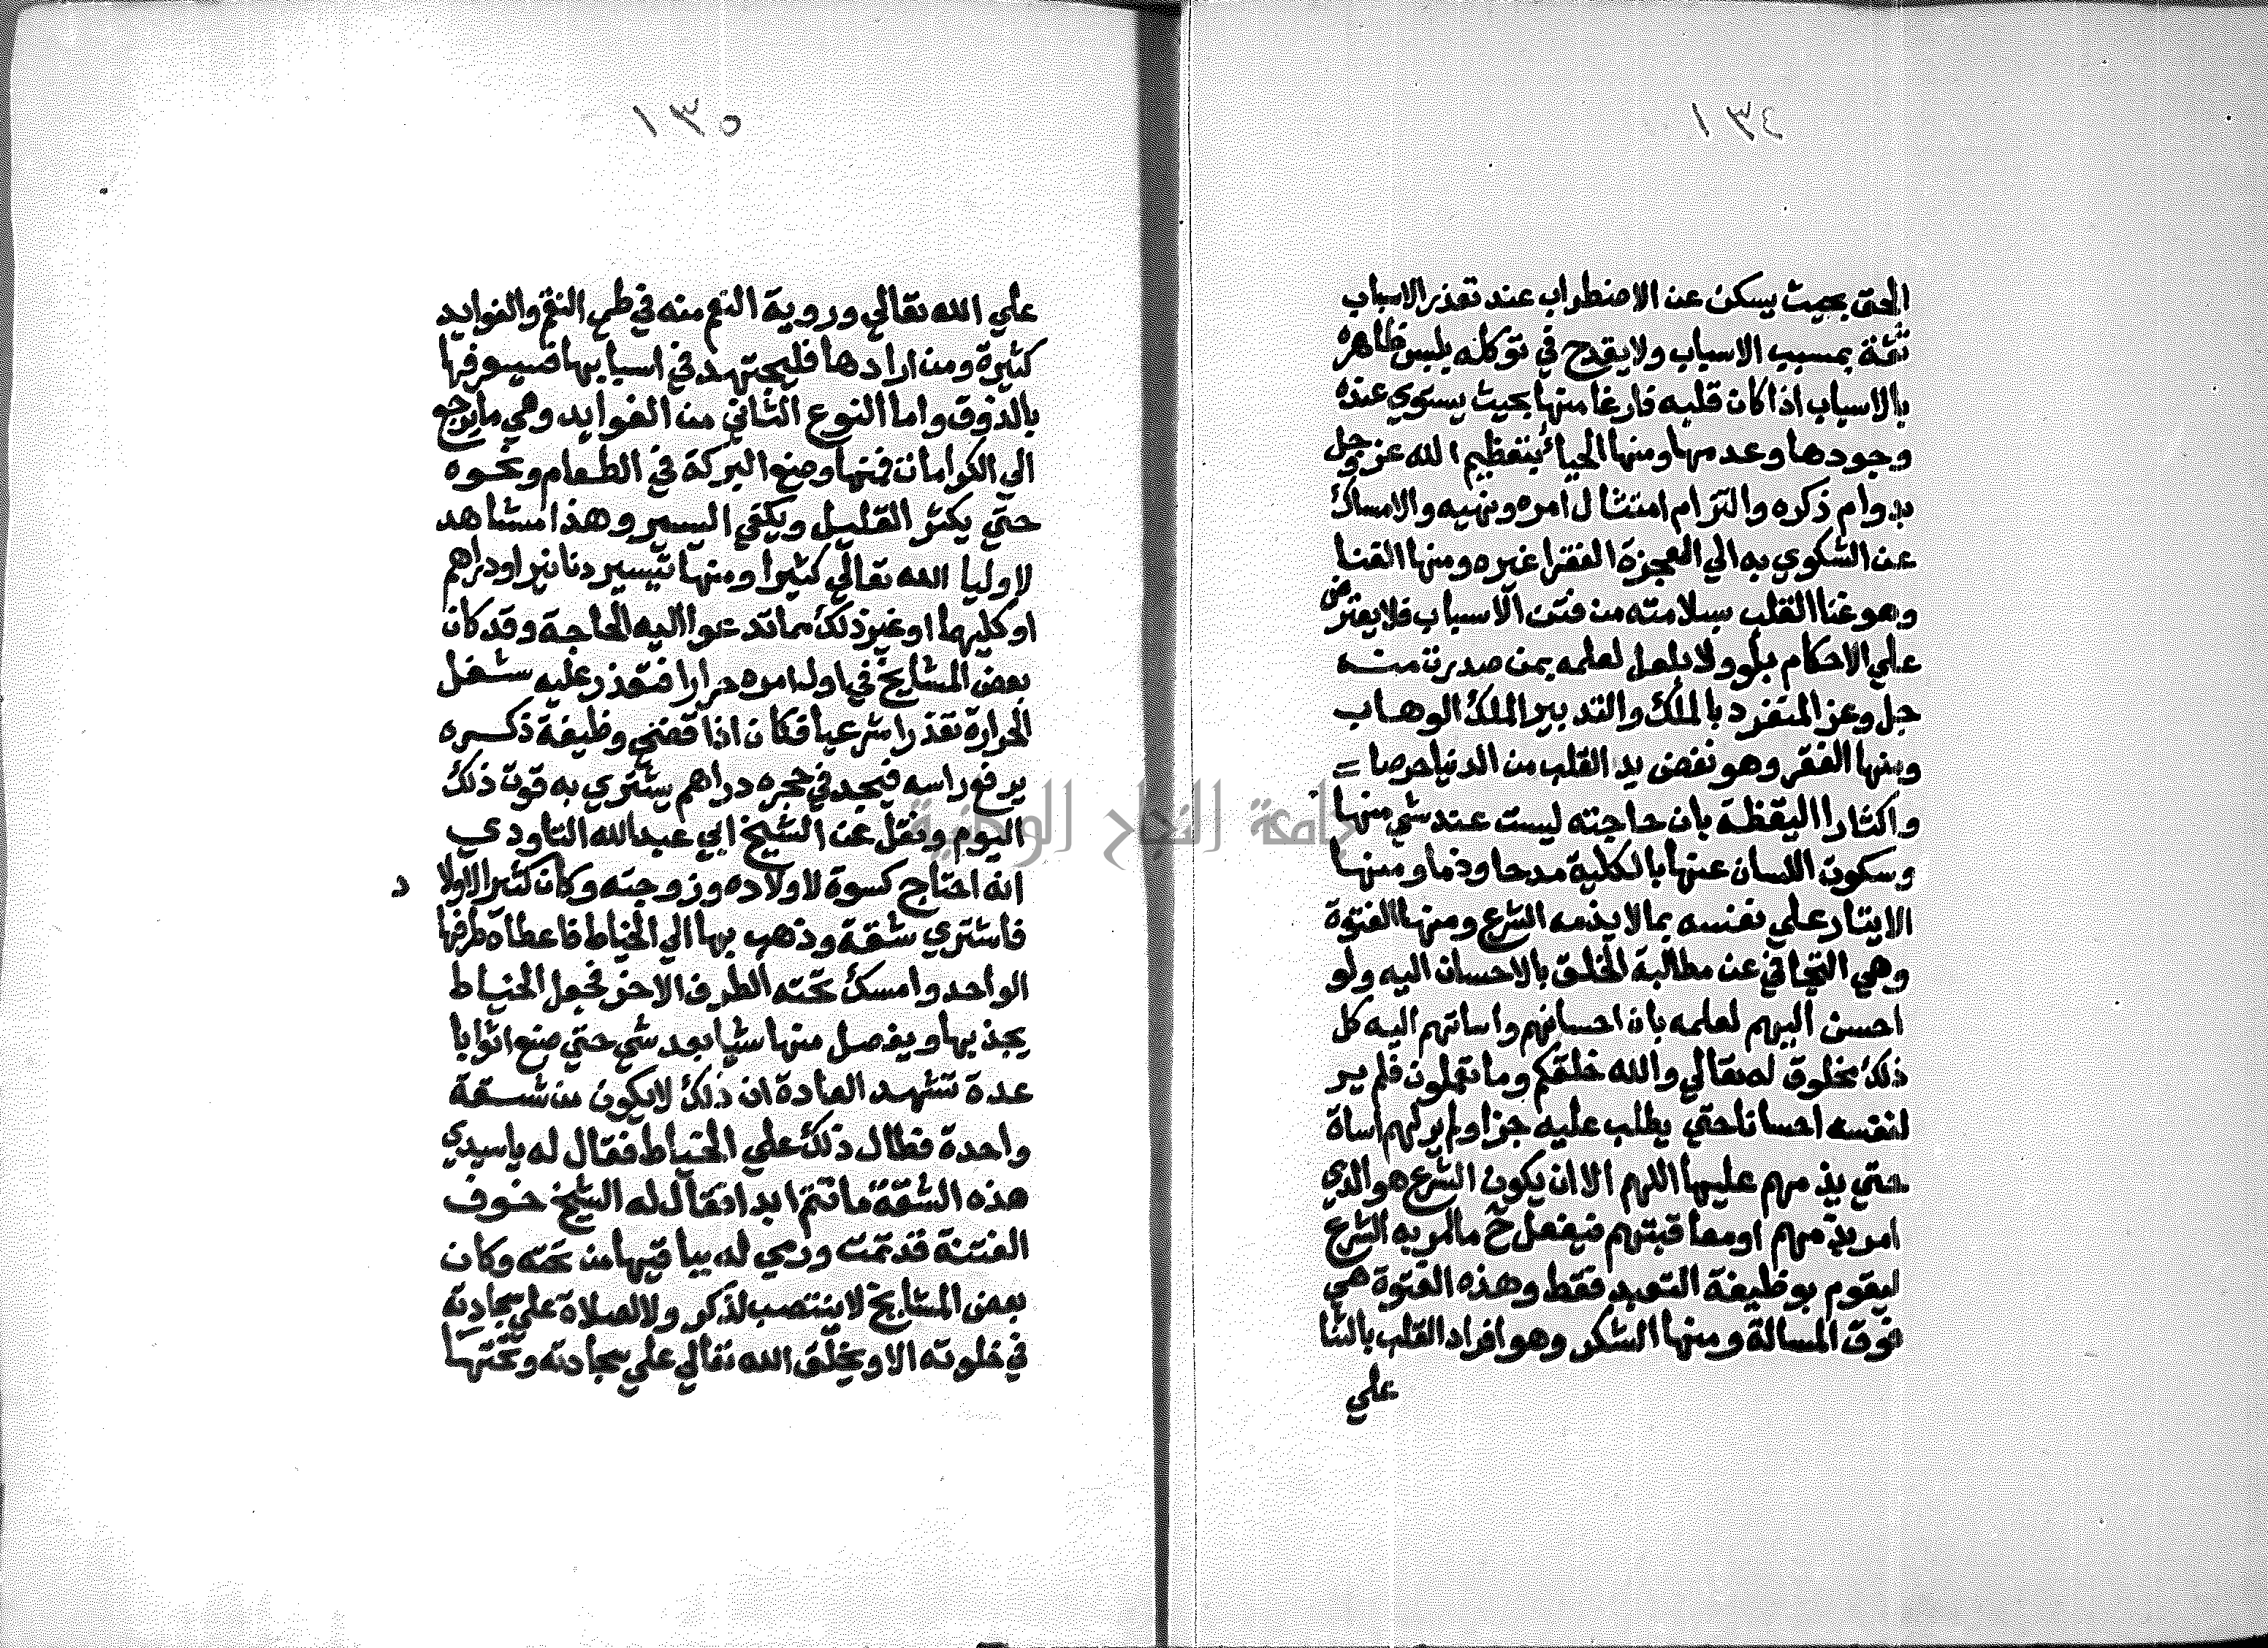 ١٣٤
الحق بحيث يسكن عن الاضطراب عند تعذر الاسباب
ثقة بمسبب الاسباب ولا يقدح في توكله يلبس ظاهره
بالاسباب اذا كان قلبه فارغا منها بحيث يستوي عنده
وجودها وعدمها ومنها الحياء بتعظيم الله عز وجل
بدوام ذكره والتزام امتثال امره ونهيه والامساك
عن الشكوي به الي العجزة الفقرا غيره ومنها الغنا
وهو غنا القلب بسلامته من فتن الاسباب فلا يعترض
علي الاحكام بلو ولا بلعل لعلمه بمن صدرت منه
جل وعز المتفرد بالملك والتدبير الملك الوهاب
ومنها الفقر وهو نفض يد القلب من الدنيا حرصا
واكثارا اليقظة بان حاجته ليست عند شي منها
وسكوت اللسان عنها بالكلية مدحا وذما ومنها
الايثار علي نفسه بما لا يذمه الشرع ومنها الفتوة
وهي التجافي عن مطالبة الخلق بالاحسان اليه ولو
احسن اليهم لعلمه بان احسانهم واساتهم اليه كل
ذلك مخلوق له تعالي والله خلقكم وما تعملون فلم ير
لنفسه احسانا حتي يطلب عليه جزا ولم ير لهم اساة
حتي يذمهم عليها اللهم الا ان يكون الشرع هو الذي
امر بذمهم او معاقبتهم فيفعل ح ما امر به الشرع
ليقوم بوظيفة التعبد فقط وهذه الفتوة هي
فوق المسالة ومنها الشكر وهو افراد القلب بالثنا
علي
١٣٥
علي الله تعالي وروية النعم منه في طي النقم والفوايد
كثيرة ومن ارادها فليجتهد في اسبابها فسيعرفها
بالذوق واما النوع الثاني من الفوايد وهي ما يرجع
الي الكرامات فمنها وضع البركة في الطعام ونحوه
حتي يكثر القليل ويكفي اليسير وهذا مشاهد
لاوليا الله تعالي كثيرا ومنها تيسير دنانير او دراهم
او كليهما او غير ذلك مما تدعوا اليه الحاجة وقد كان
بعض المشايخ في اول امره حرارا فتعذر عليه شغل
الحرارة تعذرا شرعيا فكان اذا قضي وظيفة ذكره
يرفع راسه فيجد في حجره دراهم يشتري به قوت ذلك
اليوم ونقل عن الشيخ ابي عبد الله التاودي
انه احتاج كسوة لاولاده وزوجته وكان كثير الاولاد
فاشتري شقة وذهب بها الي الخياط فاعطاه طرفها
الواحد وامسك تحته الطرف الاخر فجعل الخياط
يجذبها ويفصل منها شيا بعد شي حتي صنع اثوابا
عدة تشهد العادة ان ذلك لا يكون من شقة
واحدة فطال ذلك علي الخياط فقال له يا سيدي
هذه الشقة ما تتم ابدا فقال له الشيخ خوف
الفتنة قد تمت ورمي له بباقيها من تحته وكان
بعض المشايخ لا ينتصب لذكر ولا لصلاة علي سجادته
في خلوته الا ويخلق الله تعالي علي سجادته وتحتها
جامعة النجاح الوطنية